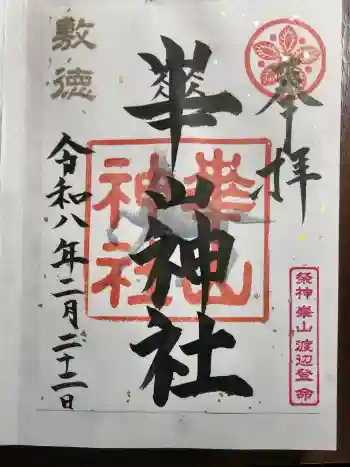 奉拝
崋山神社
崋山
神社
敷徳
令和八年二月二十二日
祭神 崋山 渡辺登命